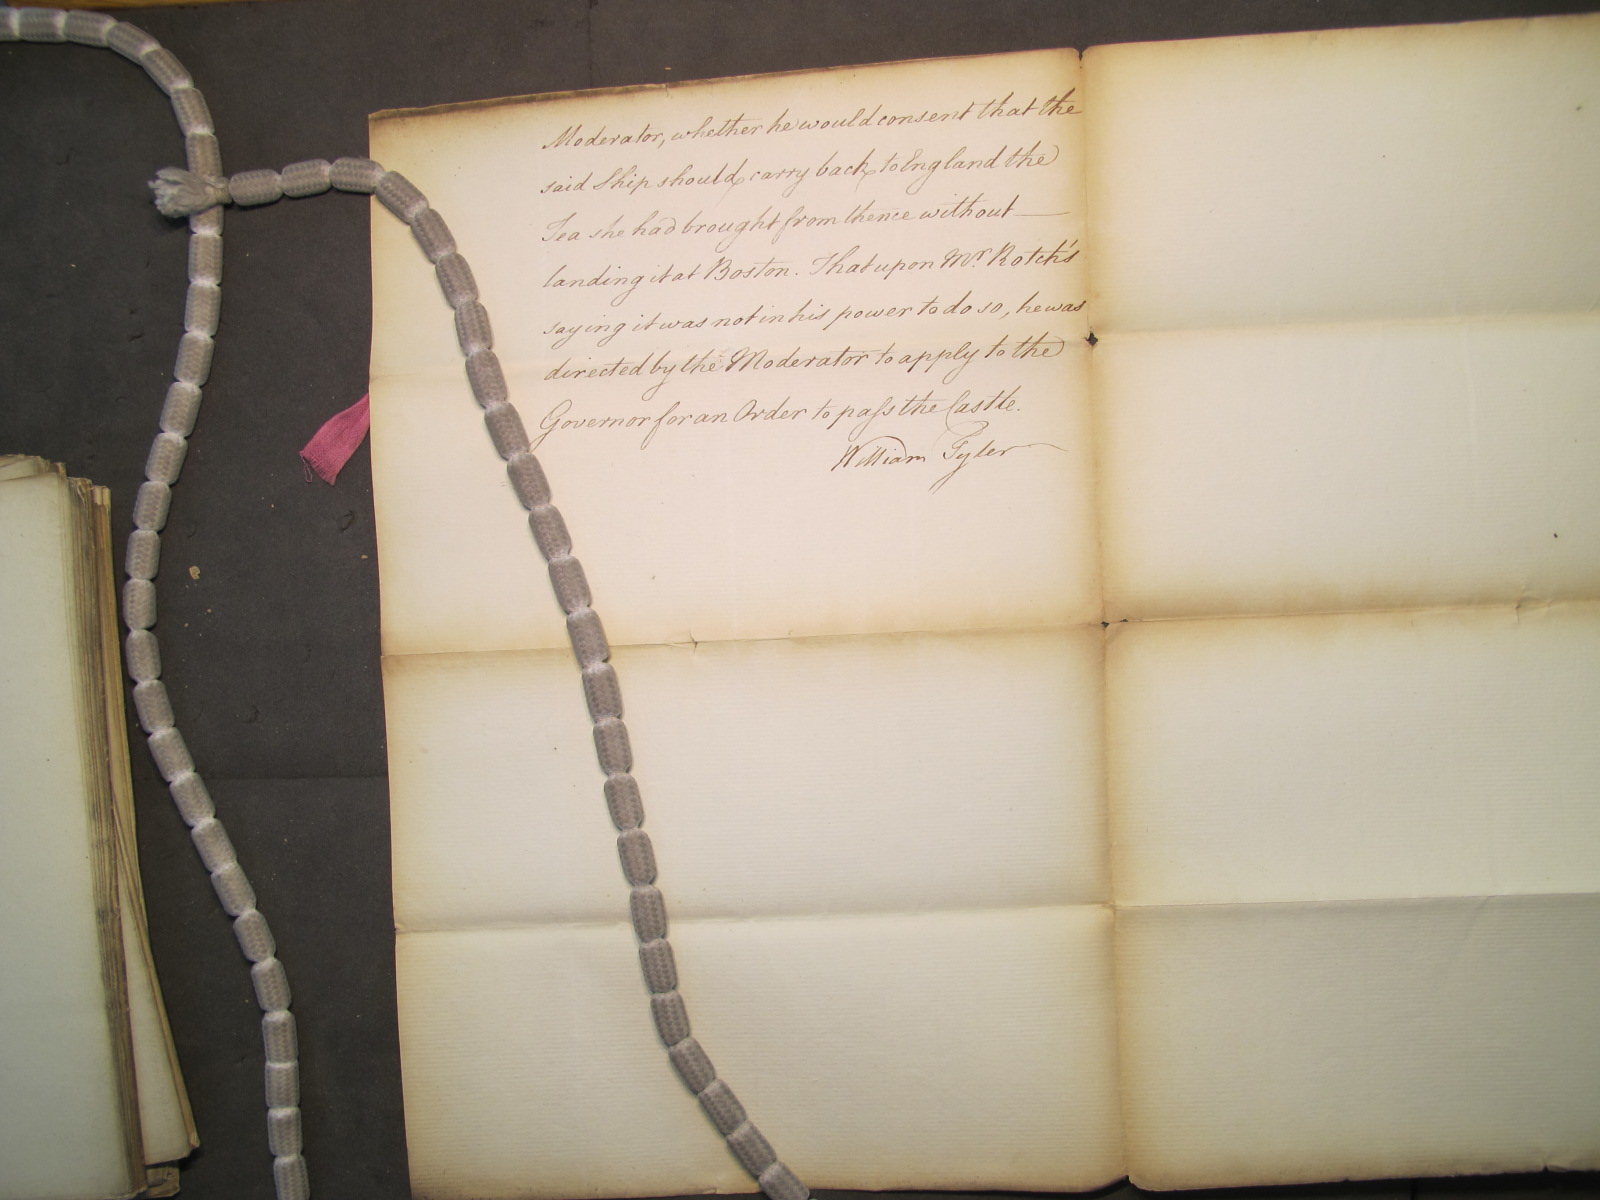 Moderator, whether he would consent that the
said Ship should, carry back, to England the
Tea she had brought from thence without —
landing it at Boston. That upon Mr. Rotch's
saying it was not in his power to do so, he was
directed by the Moderator to apply to the
Governor for an Order to paſs the Castle.
William Tyler